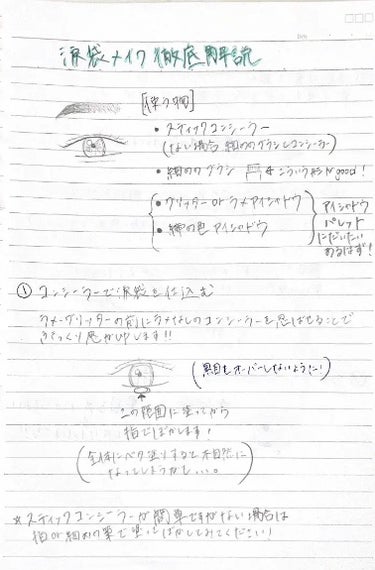 涙袋メイク徹底解説
[使う物]
• スティックコンシーラー
(ない場合 細めのブラシとコンシーラー)
• 細めのブラシ ← こういうのが good!
• グリッター or ラメアイシャドウ
• 締め色アイシャドウ
アイシャドウ
パレット
にだいたい
あるはず!
① コンシーラーで涙袋を仕込む
ラメ・グリッターの前にラメなしのコンシーラーを忍ばせることで
ぷっくり感がUPします!!
(黒目をオーバーしないように!)
この範囲に塗ってから
指でぼかします!
(全体にベタ塗りすると不自然に
なってしまうかも...。)
* スティックコンシーラーが簡単ですがない場合は
指or細めの筆で塗ってぼかしてみてください!